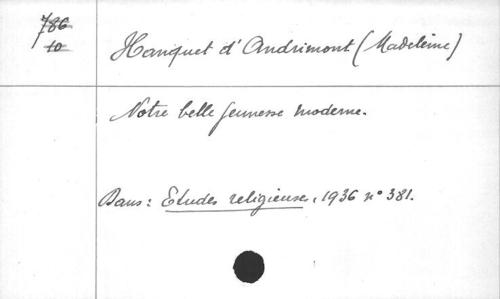 786
10
Hanquet d'Andrimont (Madeleine)
Notre belle jeunesse moderne.
Dans: Etudes religieuses, 1936 n° 381.